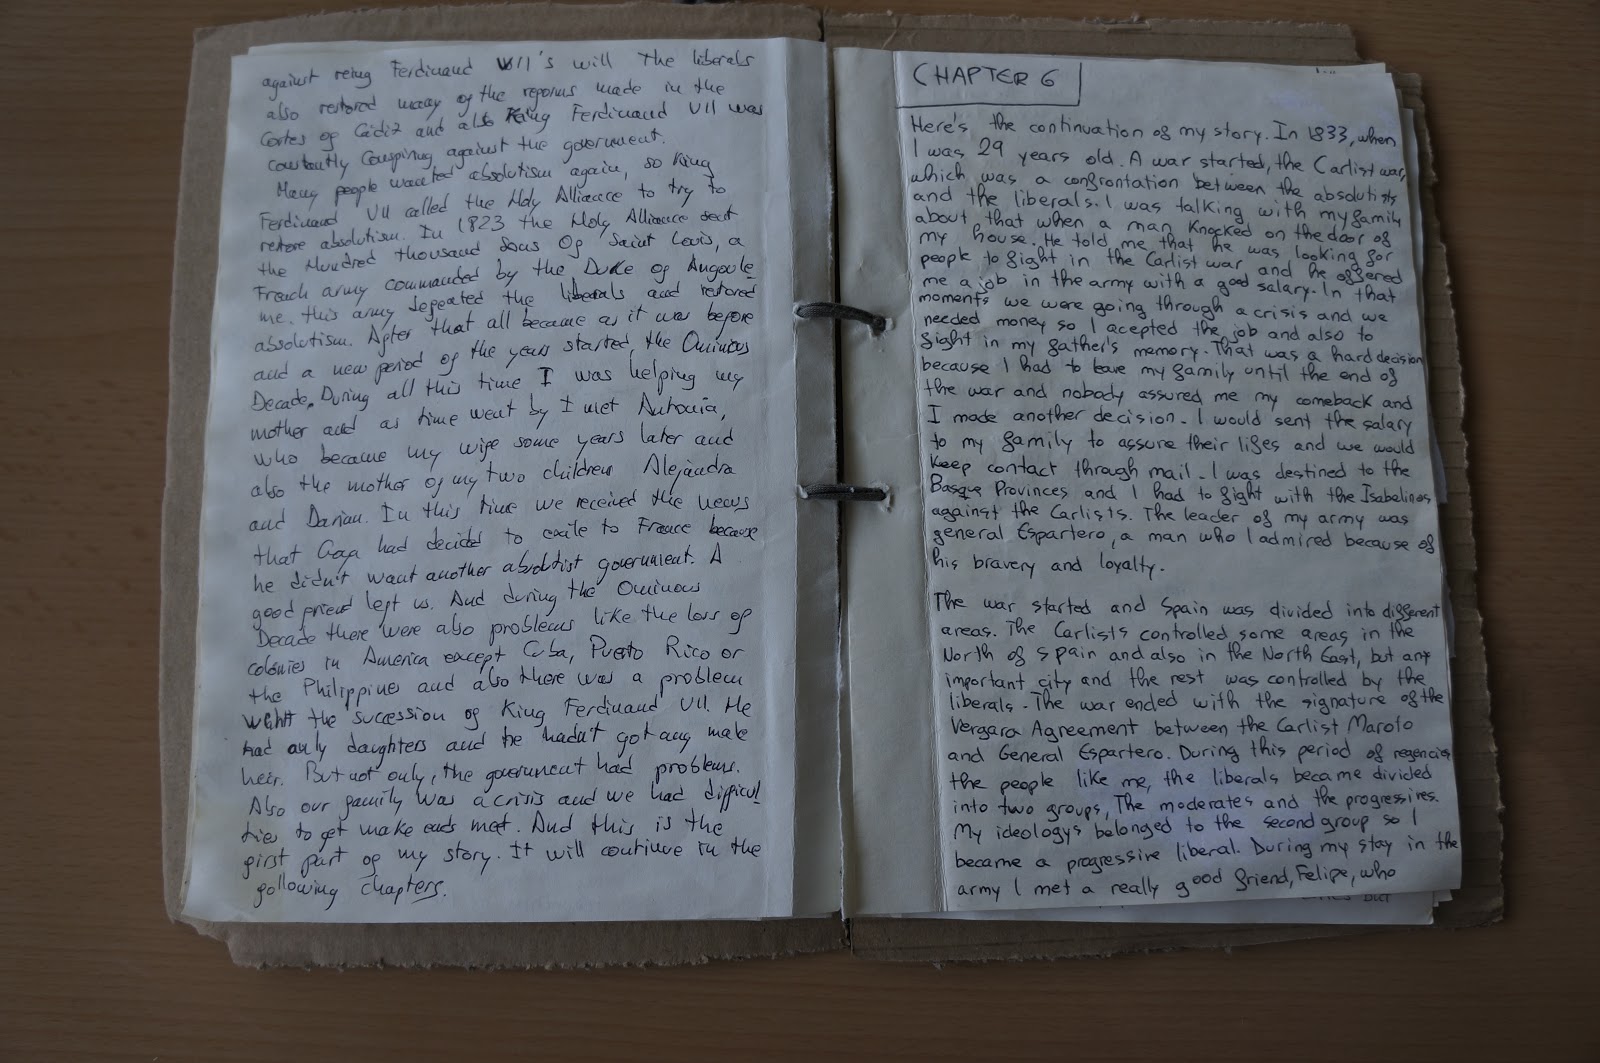 against reing Ferdinand VII's will the liberals
also restored many of the reforms made in the
Cortes of Cádiz and also King Ferdinand VII was
constantly conspiring against the government.
Many people wanted absolutism again, so King
Ferdinand VII called the Holy Alliance to try to
restore absolutism. In 1823 the Holy Alliance sent
the Hundred thousand Sons Of Saint Louis, a
French army commanded by the Duke of Angoule
me. this army defeated the liberals and restored
absolutism. After that all became as it was before
and a new period of the years started, the Ominous
Decade. During all this time I was helping my
mother and as time went by I met Antonia,
who became my wife some years later and
also the mother of my two children Alejandra
and Darian. In this time we received the news
that Goya had decided to exile to France because
he didn't want another absolutist government. A
good friend left us. And during the Ominous
Decade there were also problems like the loss of
colonies in America except Cuba, Puerto Rico or
the Philippines and also there was a problem
with the succession of King Ferdinand VII. He
had only daughters and he hadn't got any male
heir. But not only, the government had problems.
Also our family was a crisis and we had difficul
ties to get make ends met. And this is the
first part of my story. It will continue in the
following chapters.
CHAPTER 6
Here's the continuation of my story. In 1833, when
I was 29 years old. A war started, the Carlist war,
which was a confrontation between the absolutists
and the liberals. I was talking with my family
about that when a man knocked on the door of
my house. He told me that he was looking for
people to fight in the Carlist war and he offered
me a job in the army with a good salary. In that
moments we were going through a crisis and we
needed money so I acepted the job and also to
fight in my father's memory. That was a hard decision
because I had to leave my family until the end of
the war and nobody assured me my comeback and
I made another decision. I would sent the salary
to my family to assure their lifes and we would
keep contact through mail. I was destined to the
Basque Provinces and I had to fight with the Isabelinos
against the Carlists. The leader of my army was
general Espartero, a man who I admired because of
his bravery and loyalty.
The war started and Spain was divided into different
areas. The Carlists controlled some areas in the
North of Spain and also in the North East, but any
important city and the rest was controlled by the
liberals. The war ended with the signature of the
Vergara Agreement between the Carlist Maroto
and General Espartero. During this period of regencies
the people like me, the liberals became divided
into two groups, The moderates and the progressives.
My ideologys belonged to the second group so I
became a progressive liberal. During my stay in the
army I met a really good friend, Felipe, who